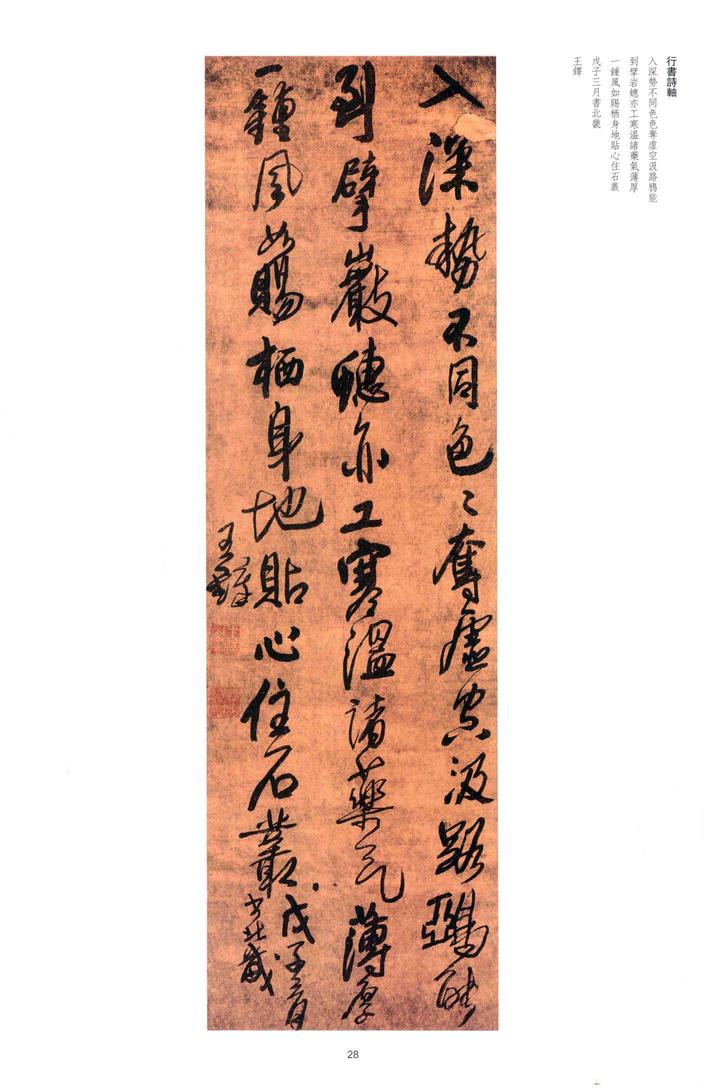 行書詩軸
入深勢不同色色奪虛空汲路鴉能
到擘岩總亦工寒溫諸藥氣薄厚
一鍾風如賜栖身地貼心住石叢
戊子三月書北畿
王鐸
入深勢不同色〻奪虛空汲路鵶能
到擘巖亦工寒溫諸藥氣薄厚
一鍾風如賜栖身地貼心住石叢戊子三月
書北畿
王鐸
28